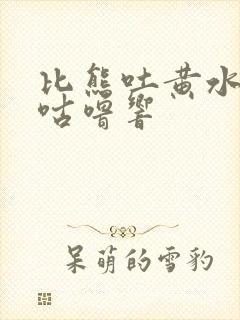 比熊吐黄水
咕噜响
呆萌的雪豹